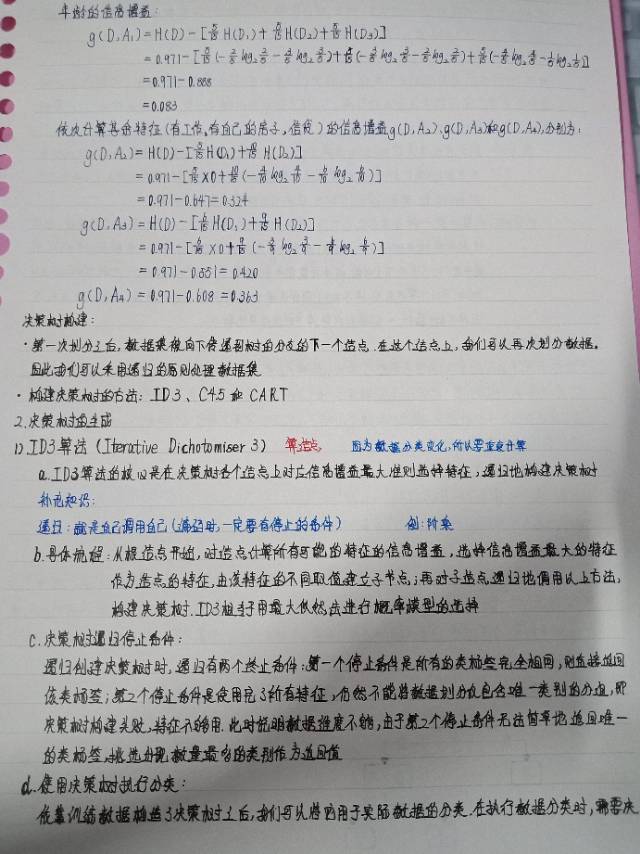 年龄的信息增益:
g(D,A₁)=H(D)-[5/15 H(D₁)+5/15 H(D₂)+5/15 H(D₃)]
=0.971-[5/15(-2/5 log₂ 2/5-3/5 log₂ 3/5)+5/15(-3/5 log₂ 3/5-2/5 log₂ 2/5)+5/15(-4/5 log₂ 4/5-1/5 log₂ 1/5)]
=0.971-0.888
=0.083
依次计算其余特征(有工作,有自己的房子,信贷)的信息增益g(D,A₂),g(D,A₃)和g(D,A₄),分别为:
g(D,A₂)=H(D)-[5/15 H(D₁)+10/15 H(D₂)]
=0.971-[5/15×0+10/15(-4/10 log₂ 4/10-6/10 log₂ 6/10)]
=0.971-0.647=0.324
g(D,A₃)=H(D)-[6/15 H(D₁)+9/15 H(D₂)]
=0.971-[6/15×0+9/15(-3/9 log₂ 3/9-6/9 log₂ 6/9)]
=0.971-0.551=0.420
g(D,A₄)=0.971-0.608=0.363
决策树构建:
·第一次划分之后,数据集被向下传递到树的分支的下一个结点.在这个结点上,我们可以再次划分数据.
因此我们可以采用递归的原则处理数据集
·构建决策树的方法: ID3、C4.5和CART
2.决策树的生成
1).ID3算法(Iterative Dichotomiser 3) 算结点 因为数据分类变化,所以要重复计算
a.ID3算法的核心是在决策树各个结点上对应信息增益最大准则选择特征,递归地构建决策树
补充知识:
递归:就是自己调用自己(编码时,一定要有停止的条件) 例:阶乘
b.具体流程:从根结点开始,对结点计算所有可能的特征的信息增益,选择信息增益最大的特征
作为结点的特征,由该特征的不同取值建立子节点;再对子结点递归地调用以上方法,
构建决策树.ID3相当于用最大似然法进行概率模型的选择
c.决策树递归停止条件:
递归创建决策树时,递归有两个终止条件:第一个停止条件是所有的类标签完全相同,则直接返回
该类标签;第2个停止条件是使用完了所有特征,仍然不能将数据划分仅包含唯一类别的分组,即
决策树构建失败,特征不够用.此时说明数据维度不够,由于第2个停止条件无法简单地返回唯一
的类标签,挑选出现数量最多的类别作为返回值
d.使用决策树执行分类:
依靠训练数据构造了决策树之后,我们可以将它用于实际数据的分类.在执行数据分类时,需要决